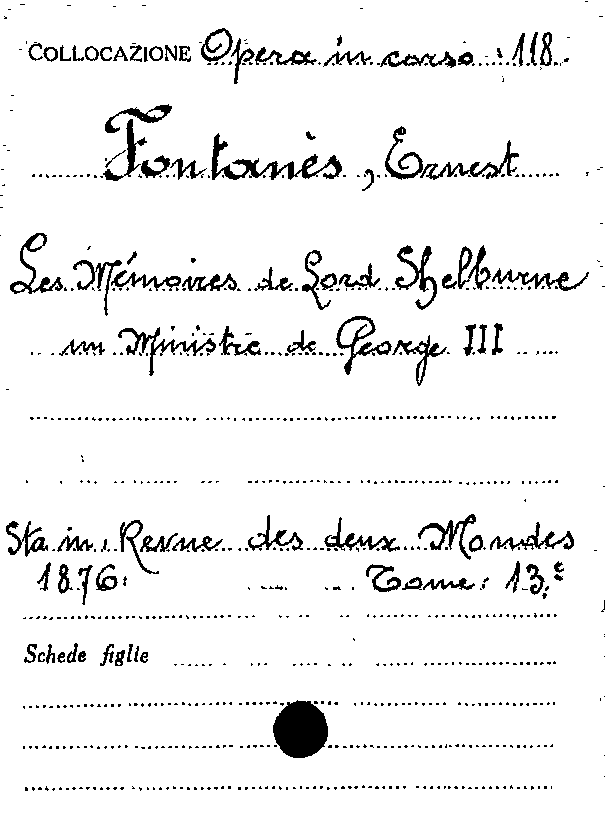 COLLOCAZIONE Opera in corso : 118.
Fontanès, Ernest
Les Mémoires de Lord Shelburne
un Ministre de George III
Sta in: Revue des deux Mondes
1876. Tome: 13.e
Schede figlie